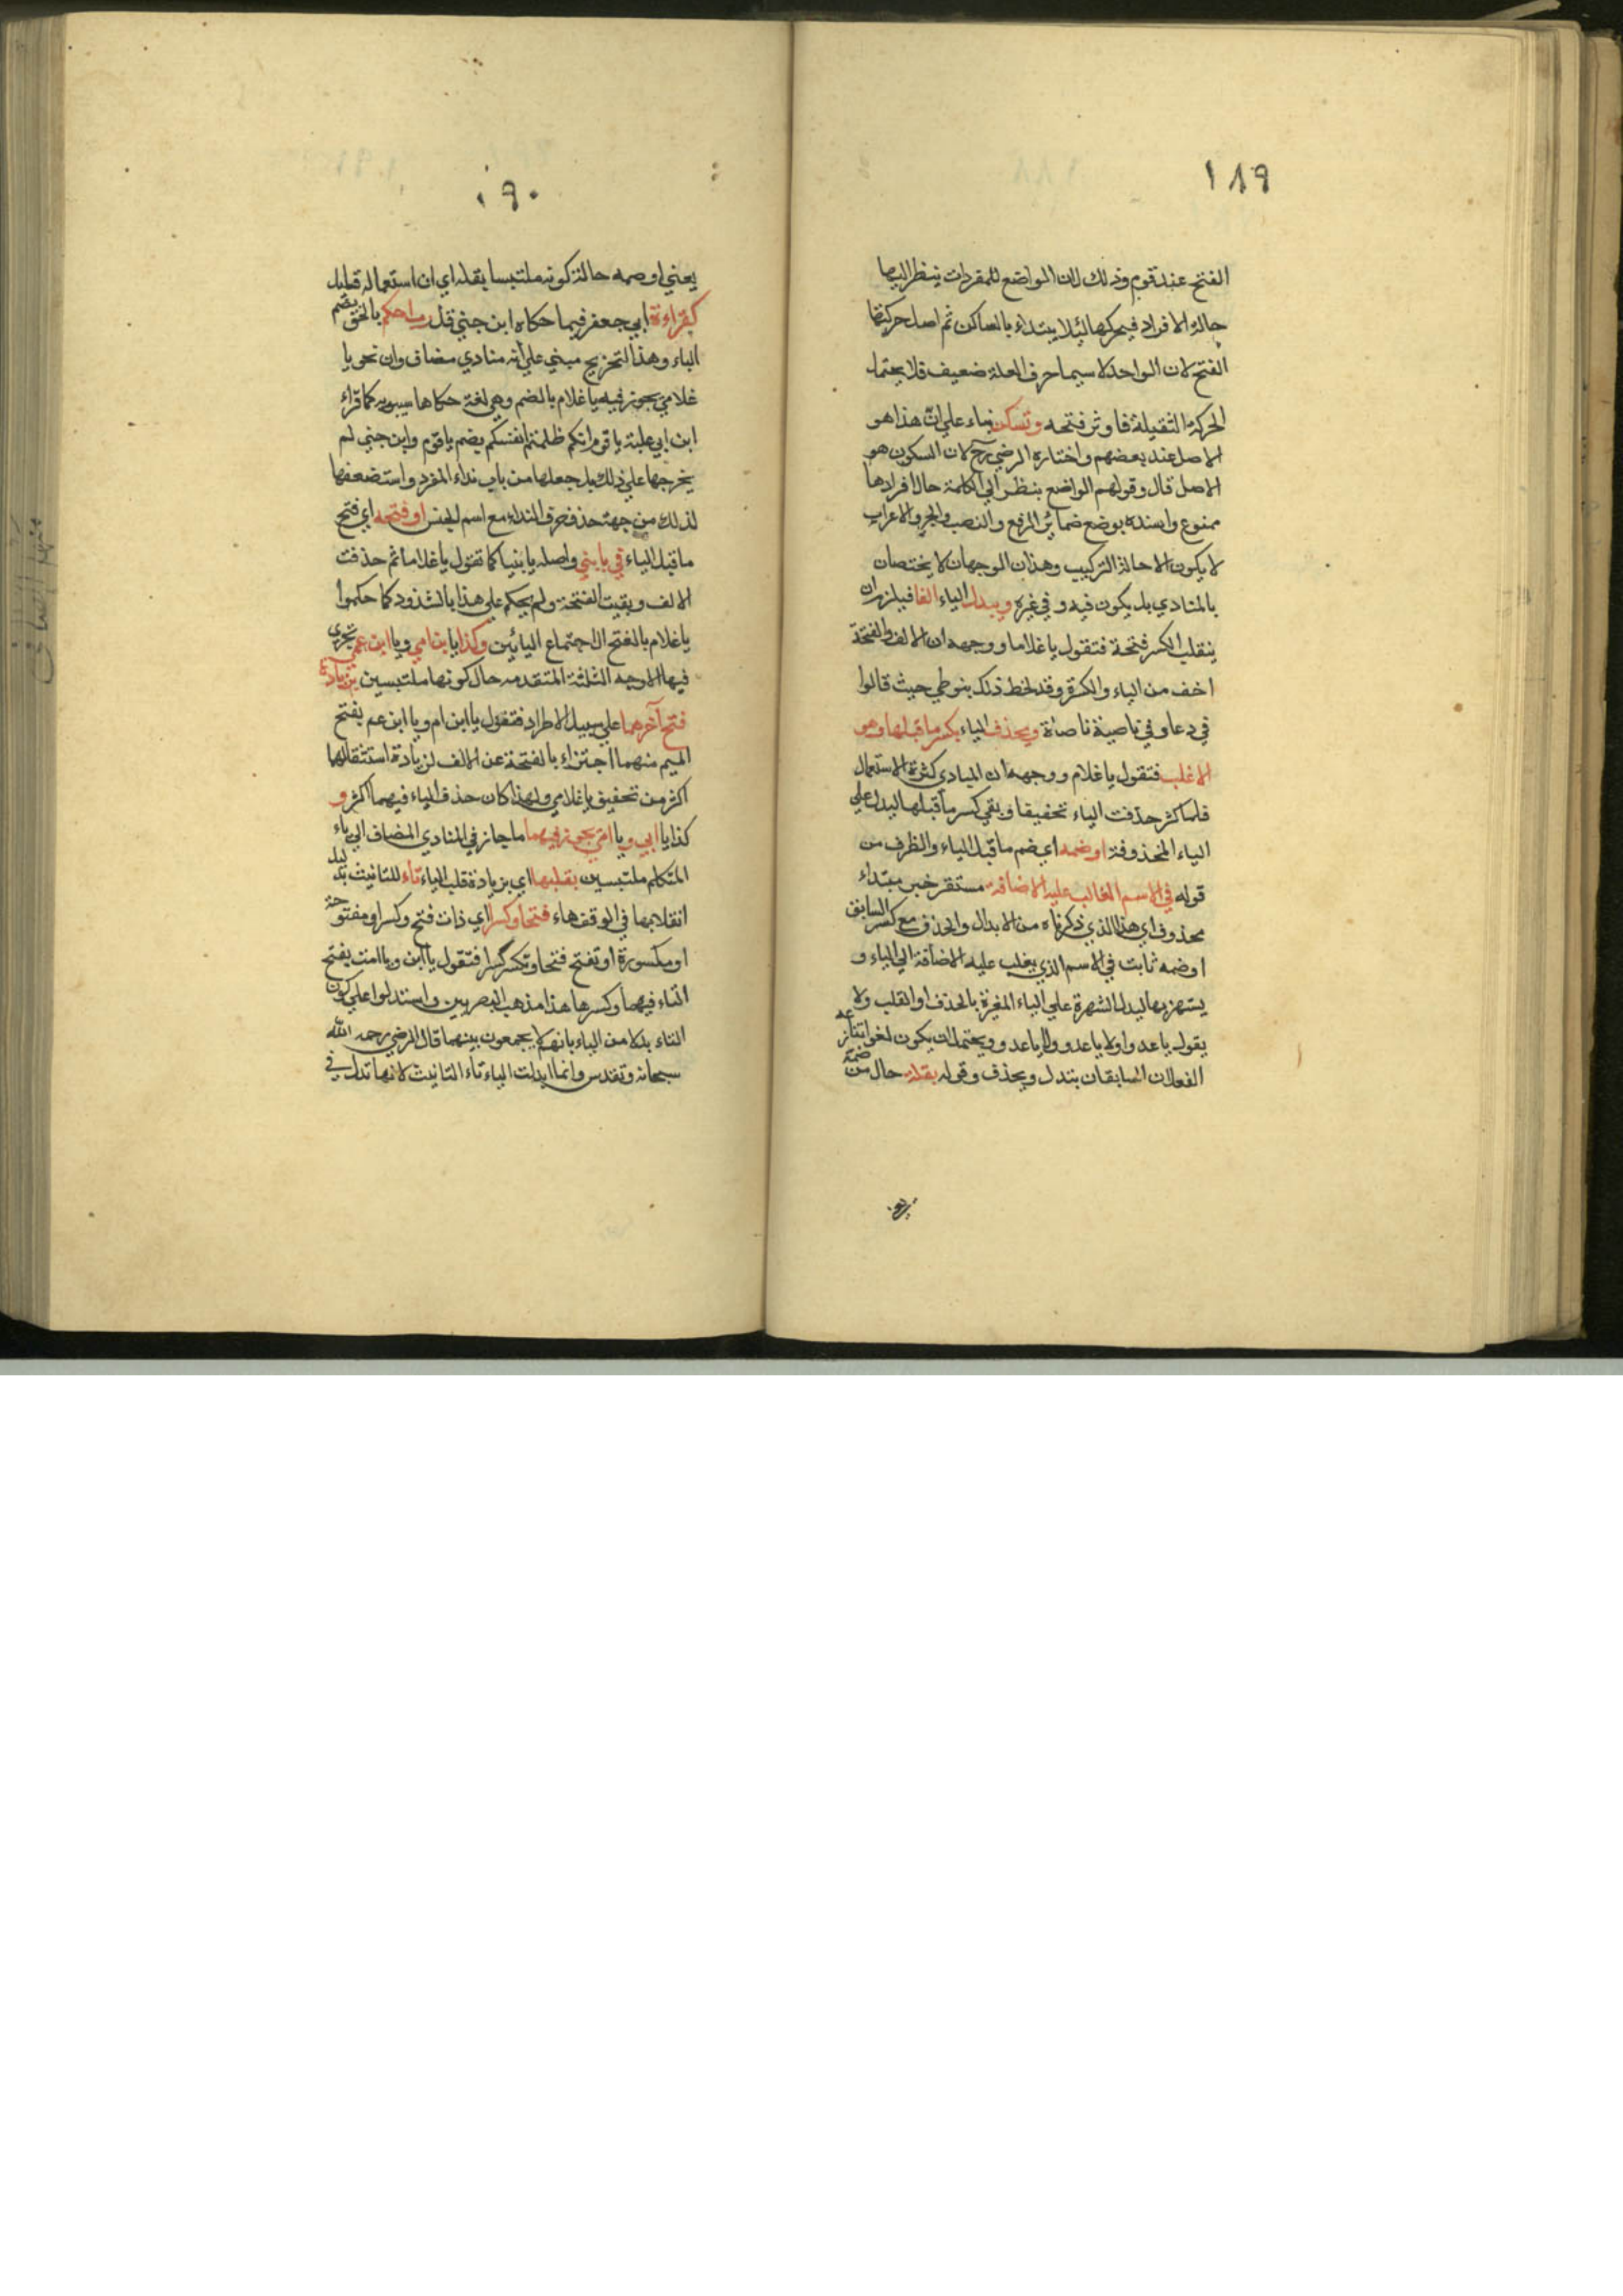 ١٨٩
الفتح عند قوم وذلك لان الواضع للمفردات ينظر اليها
حالة الافراد فيحركها لئلا يبتداء بالساكن ثم اصل حركتها
الفتح لان الواحد لا سيما حرف العلة ضعيف فلا يحتمل
الحركة الثقيلة فاوثر فتحه وتسكن بناء علي ان هذا هو
الاصل عند بعضهم واختاره الرضي رح لان السكون هو
الاصل قال وقولهم الواضع ينظر الي الكلمة حال افرادها
ممنوع واسنده بوضع ضمائر الرفع والنصب والجر والاعراب
لا يكون الا حالة التركيب وهذان الوجهان لا يختصان
بالمنادي بل يكون فيه وفي غيره ويبدل الياء الفا فيلزم ان
ينقلب الكسر فتحة فتقول ياغلاما ووجهه ان الالف والفتحة
اخف من الياء والكسرة وقد لحظ ذلك بنوطي حيث قالوا
في دعا وفي ناصية ناصاة ويحذف الياء بكسر ما قبلها وهو
الاغلب فتقول ياغلام ووجهه ان المنادي كثرة الاستعمال
فلما كثر حذفت الياء تخفيفا وبقي كسر ما قبلها ليدل علي
الياء المحذوفة اوضمه اي ضم ما قبل الياء والظرف من
قوله في الاسم الغالب عليه الاضافة مستقر خبر مبتداء
محذوف اي هذا الذي ذكرناه من الابدال والحذف مع كسر السابق
اوضمه ثابت في الاسم الذي يغلب عليه الاضافة الي الياء و
يشتهر بها ليدل الشهرة علي الياء المغيرة بالحذف او القلب ولا
يقول ياعدوا ولا ياعدو ولا ياعدو ويحتمل ان يكون لغوا تنازعه
الفعلان السابقان يتدل ويحذف وقوله بقلة حال من ضمة
١٩٠
يعني اوضمه حالة كونه ملتبسا بقلة اي ان استعماله قليل
كقراءة ابي جعفر فيما حكاه ابن جني قل رب احكم بالحق بضم
الباء وهذا التخريج مبني علي انه منادي مضاف وان نحو يا
غلامي يجوز فيه ياغلام بالضم وهي لغة حكاها سيبويه كما قراء
ابن ابي عبلة ياقوم انكم ظلمتم انفسكم بضم ياقوم وابن جني لم
يخرجها علي ذلك بل جعلها من باب نداء المفرد واستضعفها
لذلك من جهة حذف حرف النداء مع اسم الجنس اوفتحه اي فتح
ما قبل الياء في يابني واصله يابنيا كما تقول ياغلاما ثم حذفت
الالف وبقيت الفتحة ولم يحكم علي هذا بالشذوذ كما حكموا
ياغلام بالفتح لاجتماع اليائين وكذا يابن امي ويا ابن عمي تجري
فيها الاوجه الثلثة المتقدمه حال كونها ملتبسين بزيادة
فتح آخرهما علي سبيل الاطراد فتقول ياابن ام وياابن عم بفتح
الميم منهما اجتزاء بالفتحة عن الالف لزيادة استثقالهما
اكثر من تخفيف ياغلامي ولهذا كان حذف الياء فيهما اكثر و
كذا ياابي وياامي يجوز فيهما ما جاز في المنادي المضاف الي ياء
المتكلم ملتبسين بقلبها اي بزيادة قلب الياء تاء للتانيث بدليل
انقلابها في الوقف هاء فتحا وكسرا اي ذات فتح وكسر او مفتوحة
او مكسورة او تفتح فتحا وتكسر كسرا فتقول ياابت وياامت بفتح
التاء فيهما وكسرها هذا مذهب البصريين واستدلوا علي كون
التاء بدلا من الياء بانهم لا يجمعون بينهما قال الرضي رحمه الله
سبحانه وتقدس وانما ابدلت الياء تاء التانيث لانها تدل في